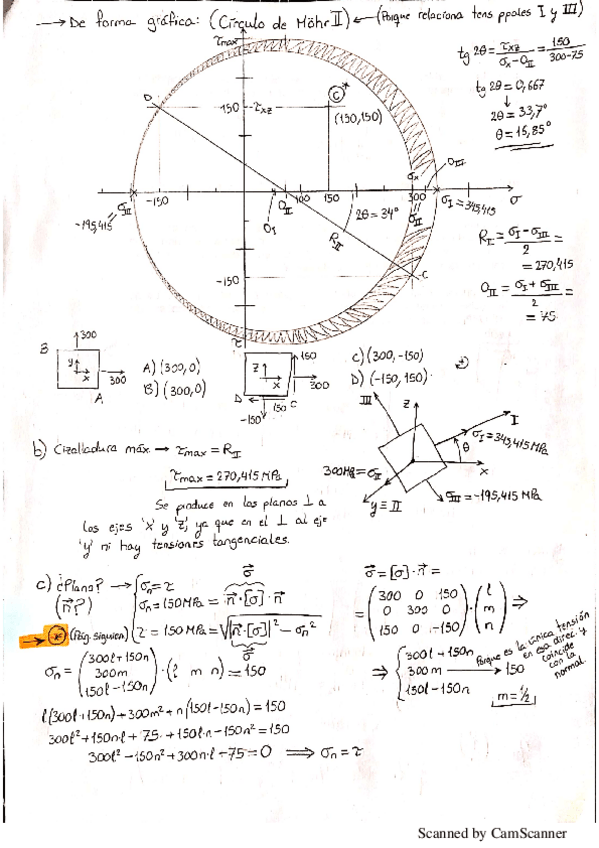 → De forma gráfica: (Círculo de Möhr II) ← (Porque relaciona tens ppales I y III)
tg 2θ = τxz / (σx - OII) = 150 / (300-75)
tg 2θ = 0,667
↓
2θ = 33,7º
θ = 15,85º
τmax
D
150
τxz
C
(150,150)
-150
σIII
-195,415
OI
OII
100
150
300
σx
σII
OIII
σI = 345,415
σ
2θ = 34º
RII
-150
C
τ
RII = (σI - σIII) / 2 =
= 270,415
OII = (σI + σIII) / 2 =
= 75
B
300
y
x
300
A
A) (300,0)
B) (300,0)
z
x
150
300
D
150
C
-150
C) (300, -150)
D) (-150, 150)
III
z
I
σI = 345,415 MPa
θ
x
300 MPa = σII
y ≡ II
σIII = -195,415 MPa
b) Cizalladura máx → τmax = RII
τmax = 270,415 MPa
Se produce en los planos ⊥ a
los ejes 'x' y 'z', ya que en el ⊥ al eje
'y' ni hay tensiones tangenciales.
c) ¿Plano? →
(n⃗?)
σn = τ
σn = 150 MPa = n⃗·[σ]·n⃗
σ⃗
τ = 150 MPa = √(|n⃗·[σ]|² - σn²)
σ⃗
→ * (Pág. siguien)
σ⃗ = [σ]·n⃗ =
= (300 0 150
0 300 0
150 0 -150) · (l
m
n) ⇒
⇒ { 300l + 150n
300m → 150
150l - 150n
Porque es la única tensión
en esa direc. y
coincide
con la
normal.
m = 1/2
σn = (300l + 150n
300m
150l - 150n) · (l m n) = 150
l(300l + 150n) + 300m² + n(150l - 150n) = 150
300l² + 150n·l + 75 + 150l·n - 150n² = 150
300l² - 150n² + 300n·l - 75 = 0 ⇒ σn = τ
Scanned by CamScanner